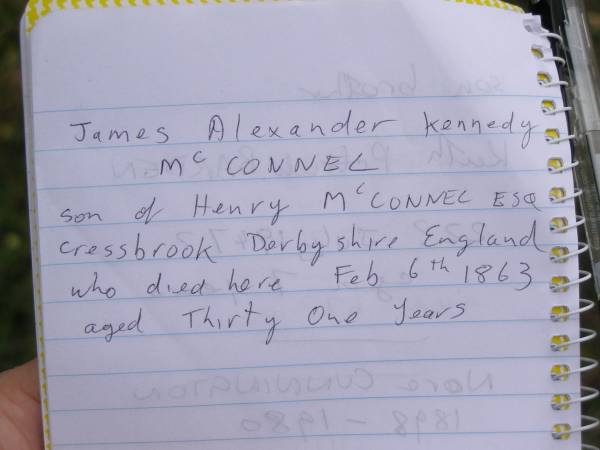 James Alexander Kennedy
McCONNEL
son of Henry McCONNEL ESQ
Cressbrook Derbyshire England
who died here Feb 6th 1863
aged Thirty One Years
Nora CUNNINGTON
1898 - 1980